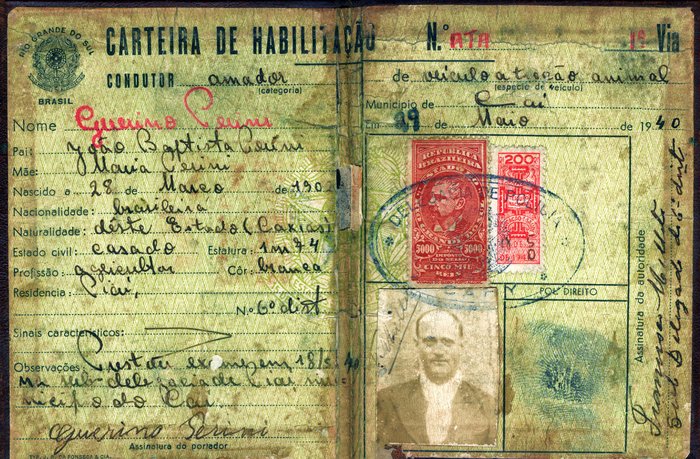 RIO GRANDE DO SUL
BRASIL
CARTEIRA DE HABILITAÇÃO
CONDUTOR amador
(categoria)
Nome Guerino Perini
Pai: João Baptista Perini
Mãe: Maria Perini
Nascido a 28 de Março de 190
Nacionalidade: brasileira
Naturalidade: deste Estado (Caxias)
Estado civil: casado Estatura: 1m74
Profissão agricultor Côr: branca
Residencia: Piaí,
N.º 6º dist
Sinais característicos:
Observações: Prestou exame em 18/5/40
na sub-delegacia de Piaí mu-
nicipio do Caí
Guerino Perini
Assinatura do portador
N.º 1ª Via
de veículo a tração animal
(especie de veículo)
Municipio de Caí
Em 29 Maio de 1940
REPUBLICA
BRAZILEIRA
5000 5000
CINCO MIL
REIS
200
POL. DIREITO
Assinatura da autoridade
Sub Delegado do 6º dist